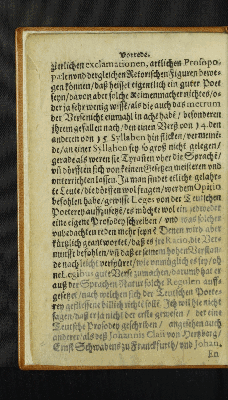 Vorrede.
zierlichen exclamationen, artlichen Prosopo-
palen und dergleichen Retorischen Figuren bewe-
gen können/ daß heisset eigentlich ein guter Poet
seyn/ davon aber solche Reimenmacher nichtes/ o-
der ja sehr wenig wissen/ als die auch das metrum
der Verse nicht einmahl in acht habē/ besonderen
ihrem gefallen nach/ den einen Verß von 14. den
anderen von 15 Syllaben hin flicken/ vermeine-
de/ an einer Syllaben sey so groß nicht gelegen/
gerade als weren sie Tyrañen uber die Sprache/
uñ dörfften sich von keinen Gesetzen meisteren und
unterrichten lassen. Ja man findet etliche gelahr-
te Leute/ die dörffen wol fragen/ wer dem Opitio
befohlen habe/ gewisse Leges von der Teutschen
Poeterey auffzusetzē/ es möchte wol ein jedweder
eine eigene Prosodey schreiben/ und was solcher
unbedachten reden mehr seyn? Denen wird aber
kürtzlich geantwortet/ daß es
befohlen/
de nach leicht
ne Leges gute Verse zu machen/
auß der Sprachen Natur solche Regulen auffs
gesetzt/ nach welchen sich der Teutschen Poete-
rey geflissene billich richte
sagen/ daß er ja nicht der erste gewesen/ der eine
Teutsche Prosodey geschrieben/ angesehen auch
anderer/ als deß Johannis Claii von Hertzberg/
Ernst Schwabens zu Franckfurth/ und Johan.
En